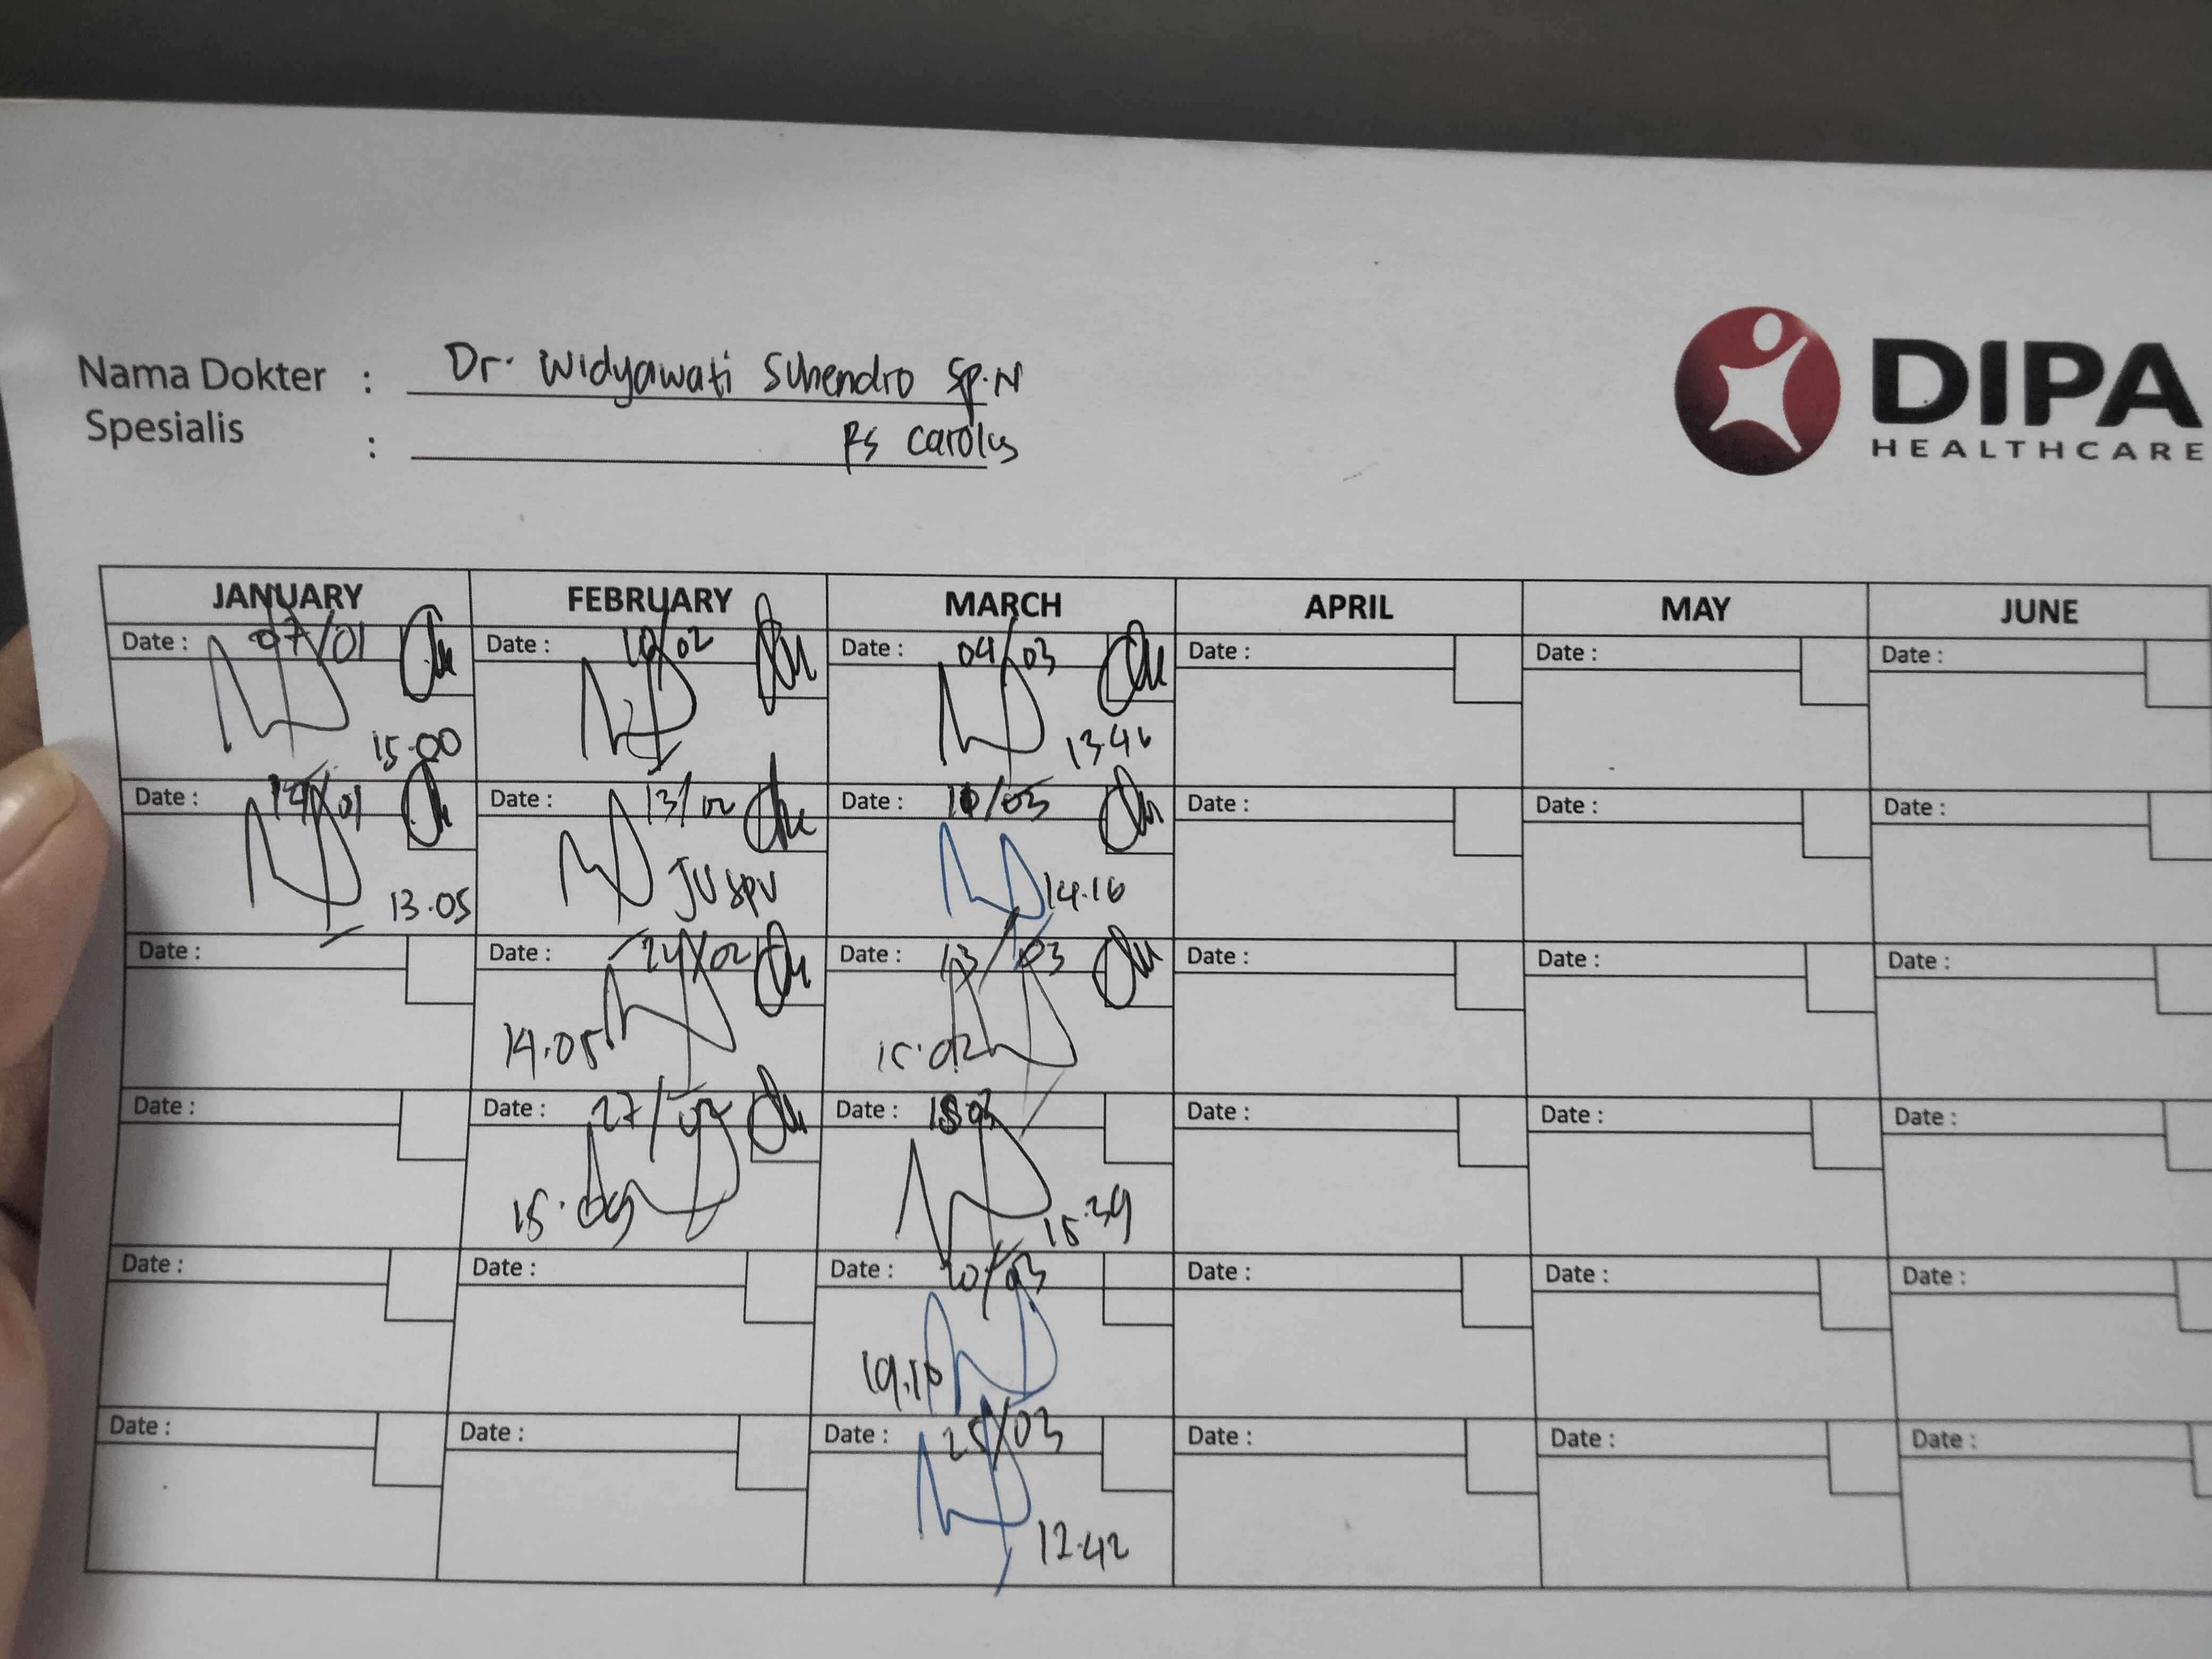 Nama Dokter : Dr. Widyawati Suhendro Sp.N
Spesialis : RS Carolus
DIPA
HEALTHCARE
JANUARY FEBRUARY MARCH APRIL MAY JUNE
Date : 07/01 Date : 10/02 Date : 04/03 Date : Date : Date :
15.00 13.46
Date : 14/01 Date : 13/02 Date : 10/03 Date : Date : Date :
13.05 JV SPV 14.16
Date : Date : 24/02 Date : 13/03 Date : Date : Date :
14.05 15.02
Date : Date : 27/02 Date : 18 03 Date : Date : Date :
15.09 15.39
Date : Date : Date : 20/03 Date : Date : Date :
19.10
Date : Date : Date : 25/03 Date : Date : Date :
12.42